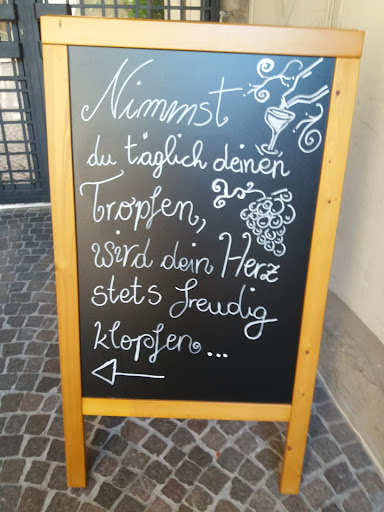 Nimmst
du täglich deinen
Tropfen,
wird dein Herz
stets freudig
klopfen...